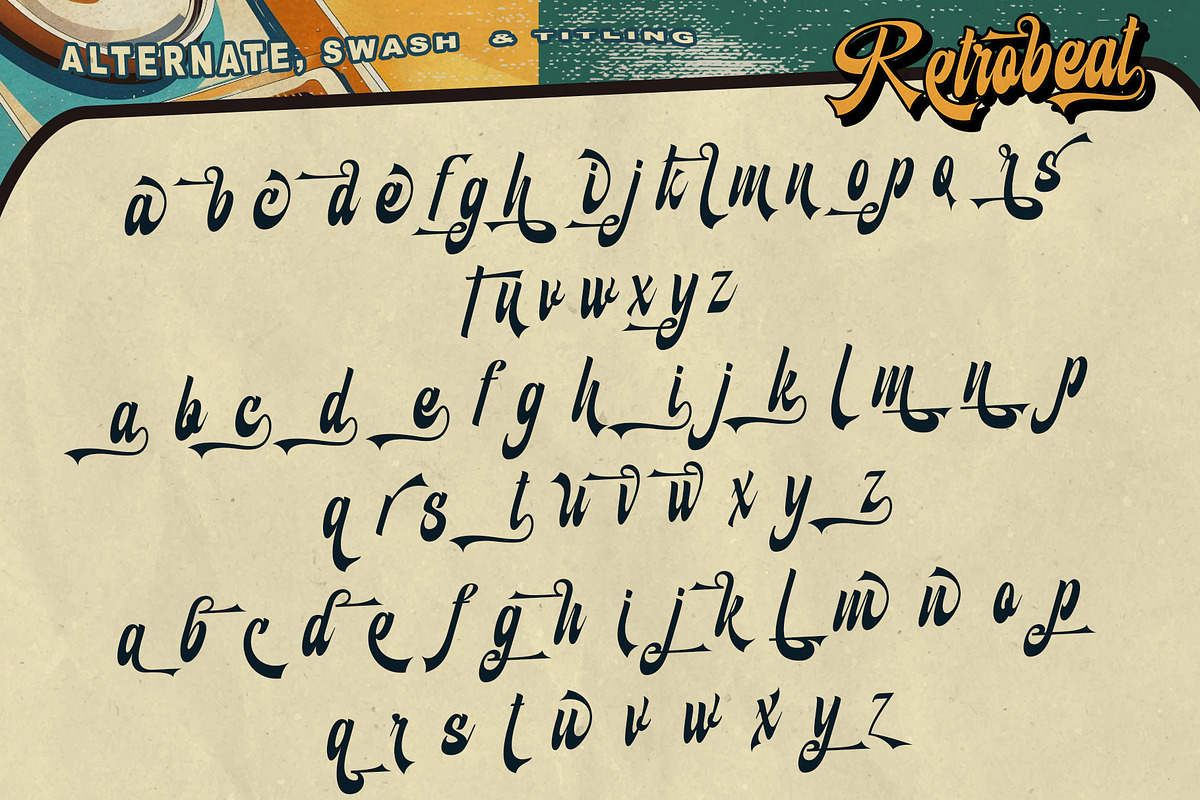 ALTERNATE, SWASH & TITLING
Retrobeat
a b c d e f g h i j k l m n o p q r s
t u v w x y z
a b c d e f g h i j k l m n p
q r s t u v w x y z
a b c d e f g h i j k l m n o p
q r s t u v w x y z